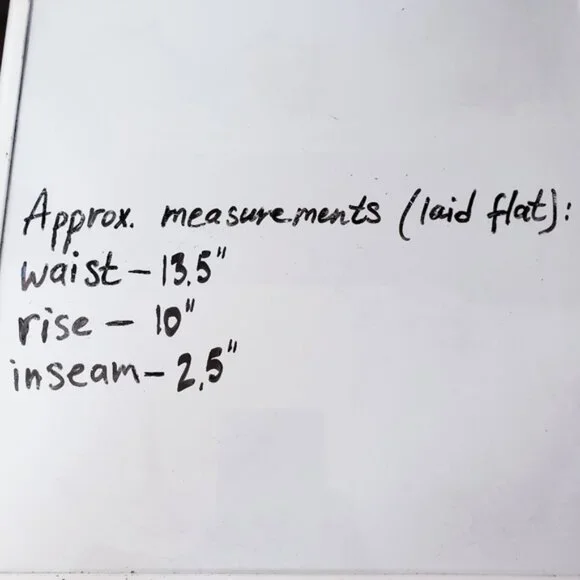 Approx. measurements (laid flat):
waist - 13.5"
rise - 10"
inseam - 2.5"